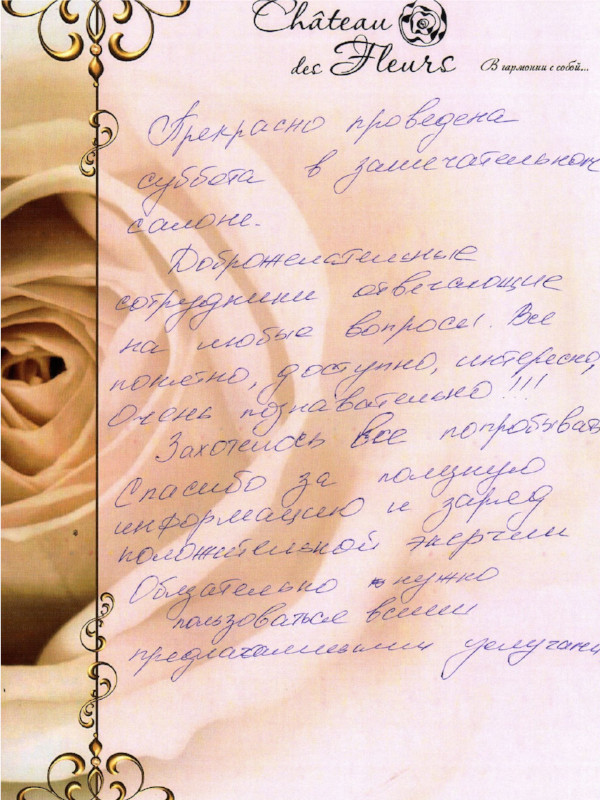 Château
des Fleurs
В гармонии с собой...
Прекрасно проведена
суббота в замечательном
салоне.
Доброжелательные
сотрудники отвечающие
на любые вопросы. Все
понятно, доступно, интересно,
очень познавательно!!!
Захотелось все попробывать
Спасибо за полезную
информацию и заряд
положительной энергии
Обязательно нужно
пользоваться всеми
предлагаемыми услугами